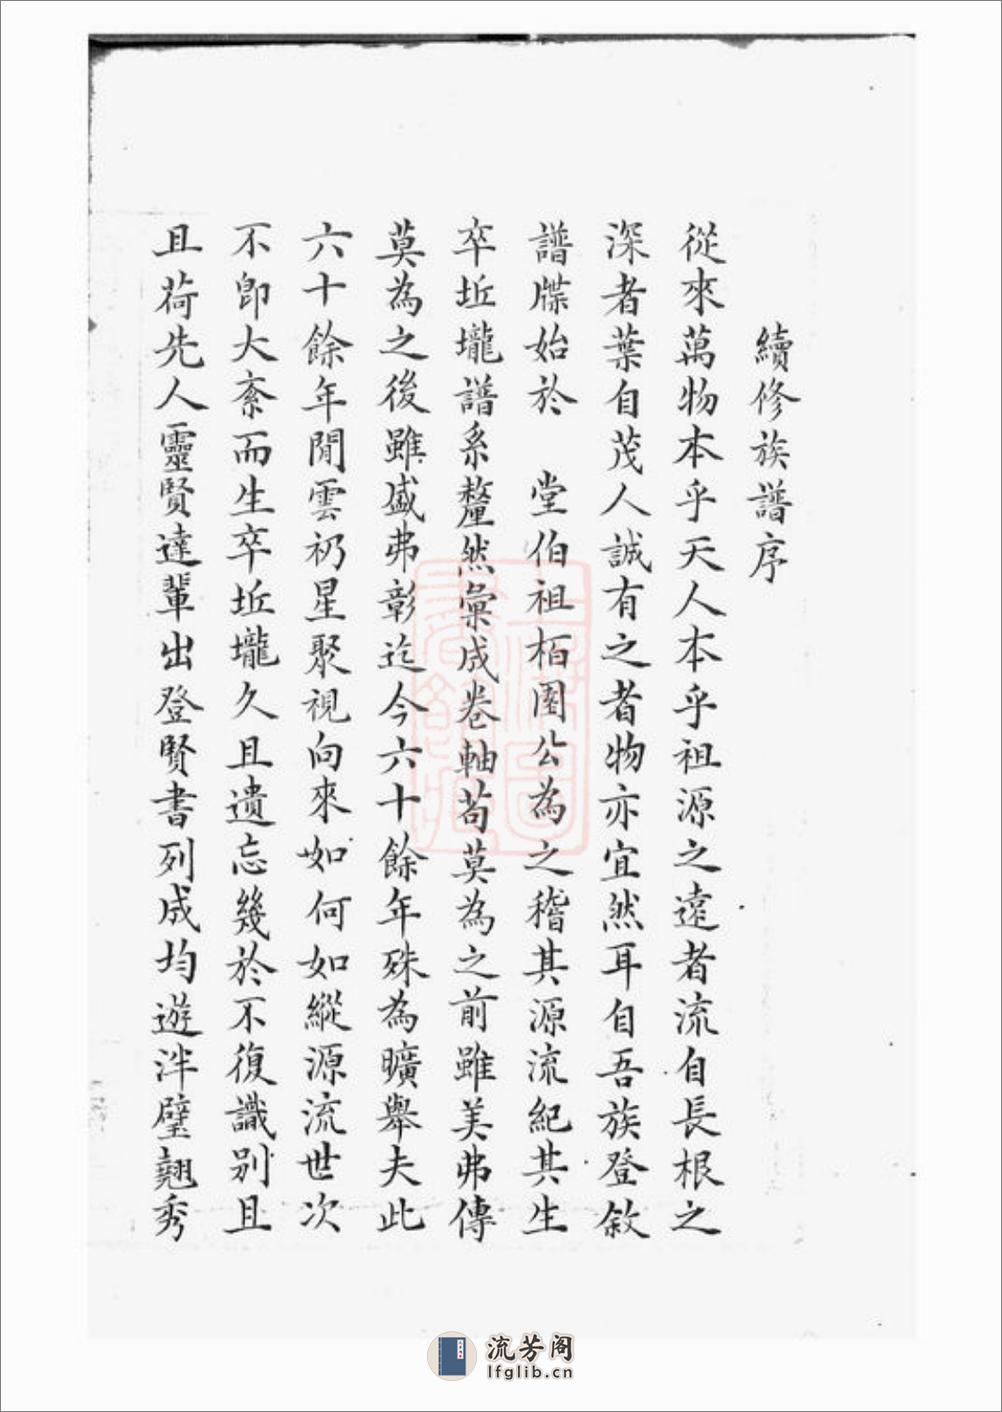 續修族譜序
從來萬物本乎天人本乎祖源之遠者流自長根之
深者葉自茂人誠有之者物亦宜然耳自吾族登敘
譜牒始於　堂伯祖栢園公為之稽其源流紀其生
卒坵壠譜系釐然彙成卷軸茍莫為之前雖美弗傳
莫為之後雖盛弗彰迄今六十餘年殊為曠舉夫此
六十餘年閒雲礽星聚視向來如何如縱源流世次
不卽大紊而生卒坵壠久且遺忘幾於不復識別且
且荷先人靈賢達輩出登賢書列成均遊泮璧翹秀
流芳阁
lfglib.cn